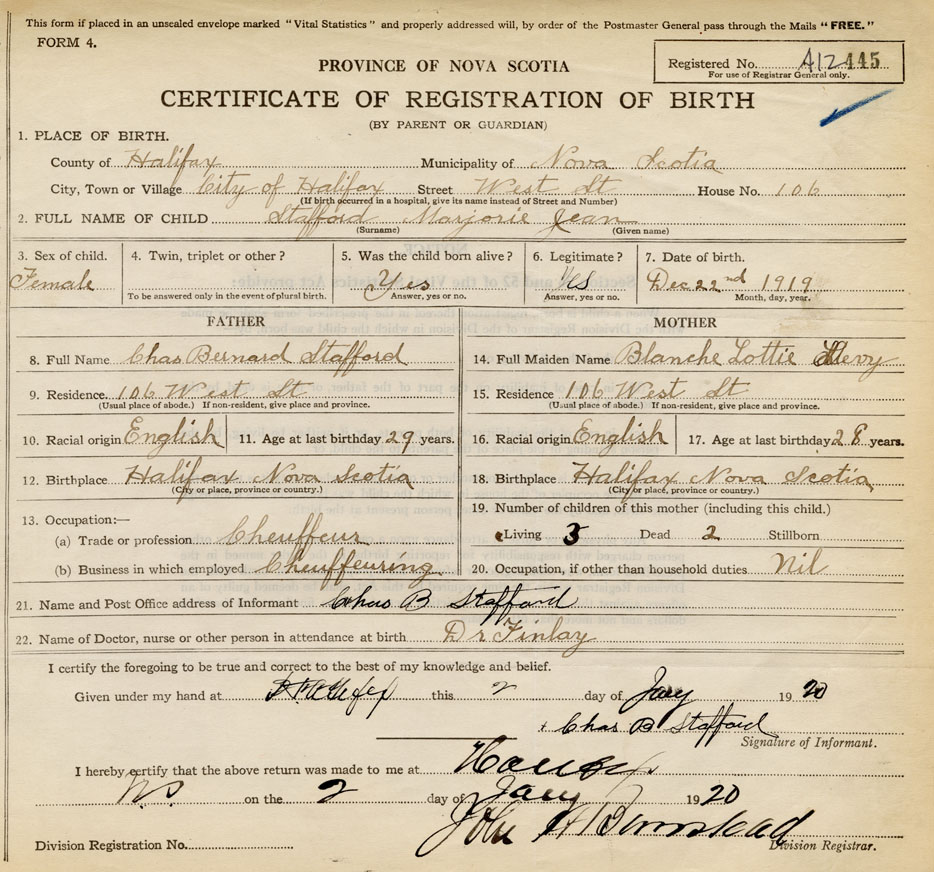 This form if placed in an unsealed envelope marked "Vital Statistics" and properly addressed will, by order of the Postmaster General pass through the Mails "FREE."
FORM 4.
Registered No. A12445
For use of Registrar General only.
PROVINCE OF NOVA SCOTIA
CERTIFICATE OF REGISTRATION OF BIRTH
(BY PARENT OR GUARDIAN)
1. PLACE OF BIRTH.
County of Halifax Municipality of Nova Scotia
City, Town or Village City of Halifax Street West St House No. 106
(If birth occurred in a hospital, give its name instead of Street and Number)
2. FULL NAME OF CHILD Stafford Marjorie Jean
(Surname) (Given name)
3. Sex of child. 4. Twin, triplet or other? 5. Was the child born alive? 6. Legitimate? 7. Date of birth.
Female Yes Yes Dec 22nd 1919
To be answered only in the event of plural birth. Answer, yes or no. Answer, yes or no. Month, day, year.
FATHER MOTHER
8. Full Name Chas Bernard Stafford 14. Full Maiden Name Blanche Lottie Levy
9. Residence. 106 West St 15. Residence 106 West St
(Usual place of abode.) If non-resident, give place and province. (Usual place of abode.) If non-resident, give place and province.
10. Racial origin English 11. Age at last birthday 29 years. 16. Racial origin English 17. Age at last birthday 28 years.
12. Birthplace Halifax Nova Scotia 18. Birthplace Halifax Nova Scotia
(City or place, province or country.) (City or place, province or country.)
13. Occupation:— 19. Number of children of this mother (including this child.)
(a) Trade or profession Cheuffeur Living 3 Dead 2 Stillborn
(b) Business in which employed Cheuffeuring 20. Occupation, if other than household duties Nil
21. Name and Post Office address of Informant Chas B Stafford
22. Name of Doctor, nurse or other person in attendance at birth Dr Finlay
I certify the foregoing to be true and correct to the best of my knowledge and belief.
Given under my hand at Halifax this 2 day of Jany 1920
+ Chas B Stafford
Signature of Informant.
I hereby certify that the above return was made to me at
NS on the 2 day of Jany 1920
John A Bumstead
Division Registration No. Division Registrar.